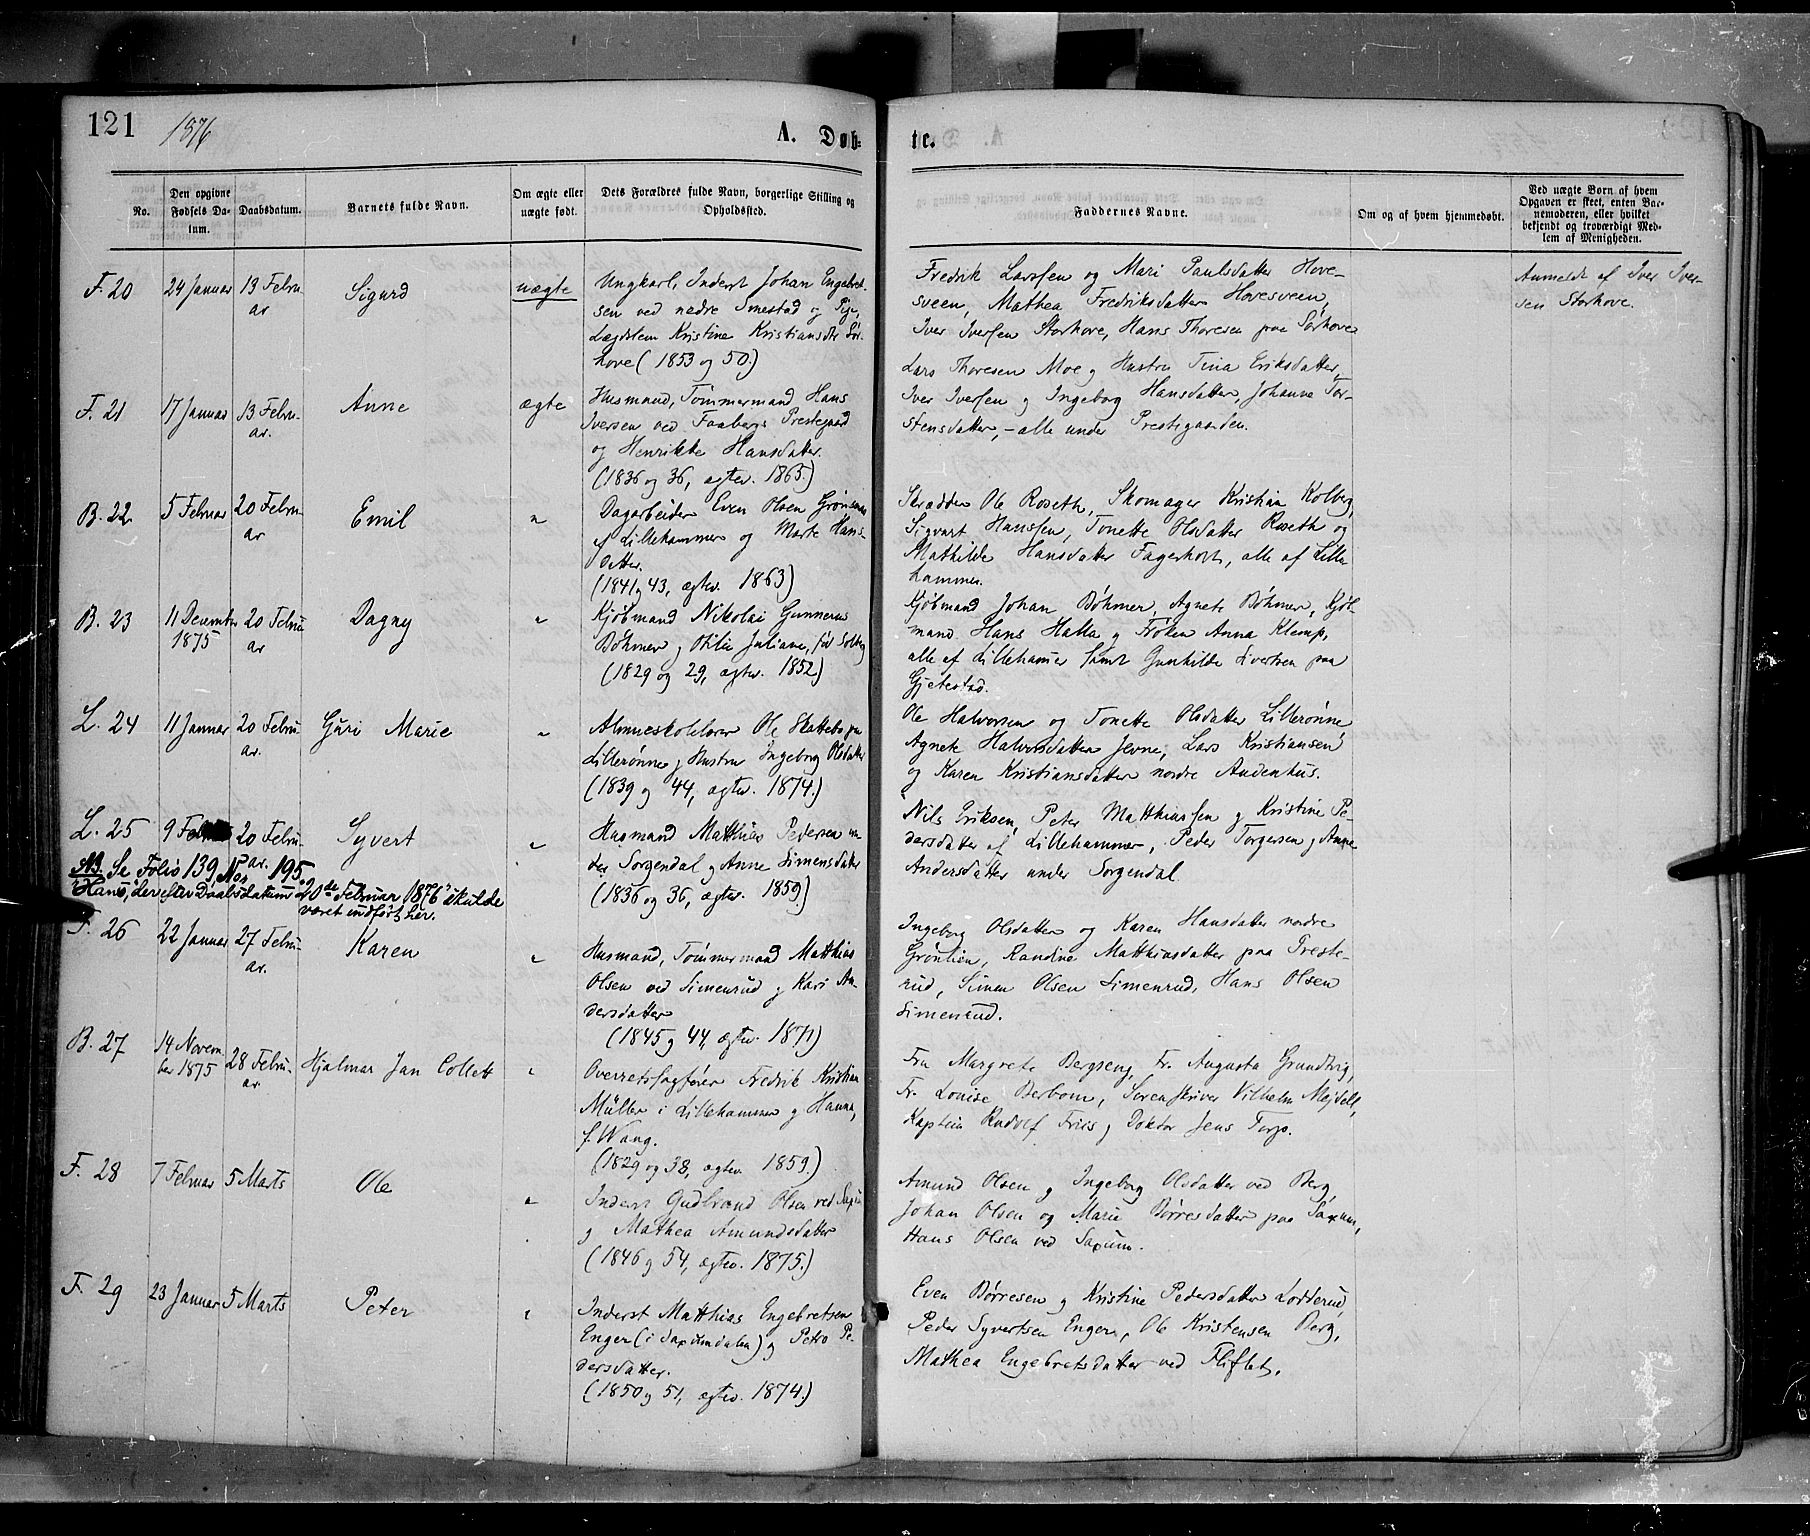 121 1876 A. Døb- te.
No.
Den opgivne Fødsels Da- tum.
Daabsdatum.
Barnets fulde Navn.
Om ægte eller uægte født.
Dets Forældres fulde Navn, borgerlige Stilling og Opholdssted.
Faddernes Navne.
Om og af hvem hjemmedøbt.
Ved uægte Born af hvem Opgaven er skeet, enten Bar- nemoderen, eller hvilket bekjendt og troværdigt Med- lem af Menigheden.
F. 20 24 Januar 13 Febru- ar Sigurd uægte
Ungkarl, Inderst Johan Engebret-
sen ved nedre Smestad og Pige,
Lægdslem Kristine Kristiansdtr Sør-
hove (1853 og 50.)
Fredrik Larssen og Mari Paulsdatter Hove-
sveen, Mathea Fredriksdatter Hovesveen,
Iver Iversen Storhove, Hans Thoresen paa Sørhove
Anmeldt af Iver Iver-
sen Storhove.
F. 21 17 Januar 13 Febru- ar. Anne ægte
Husmand, Tømmermand Hans
Iversen ved Faabergs Prestegaard
og Henrikke Hansdatter.
(1836 og 36, ægtev. 1865)
Lars Thoresen Moe og Hustru Tina Eriksdatter,
Iver Iversen og Ingeborg Hansdatter, Johanne Tor-
stensdatter, - alle under Prestegaarden.
B. 22 5 Februar 20 Febru- ar Emil "
Dagarbeider Even Olsen
af Lillehammer og Marte Hans-
datter.
(1841 og 43, ægtev. 1863)
Skrædder Ole Roseth, Skomager Kristian Kolberg,
Sigvart Hanssen, Tonette Olsdatter Roseth og
Mathilde Hansdatter Fagerhort, alle af Lille-
hammer.
B. 23 11 December 1875 20 Febru- ar Dagny "
Kjøbmand Nikolai Gunnerus
Bøhmer og Otilie Juliane, fød Solberg
(1829 og 29, ægtev. 1852)
Kjøbmand Johan Bøhmer, Agnete Bøhmer, Kjøb-
mand Hans Halla og Frøken Anna Klemp,
alle af Lillehamer samt Gunhilde Sivertsen paa
Gjetestad.
L. 24 11 Januar 20 Febru- ar. Guri Marie "
Almueskolelærer Ole Skattebo paa
Lillerønne og Hustru Ingeborg Olsdatter
(1839 og 44, ægtev. 1874.)
Ole Halvorsen og Tonette Olsdatter Lillerønne,
Agnete Halvorsdatter Jevne, Lars Kristiansen
og Karen Kristiansdatter nordre Audenhus.
L. 25 9 20 Febru- ar. Syvert "
Husmand Matthias Pedersen un-
der Sorgendal og Anne Simensdatter
(1836 og 36, ægtev. 1859.)
Nils Eriksen, Peter Matthiassen og Kristine Pe-
dersdatter af Lillehammer, Peder Torgersen og Anne
Andersdatter under Sorgendal.
NB. Se Folio 139, No 195.
"Hans", der efter Daabsdatum 20de Februar 1876 skulde
været indført her.
F. 26 22 Januar 27 Febru- ar. Karen "
Husmand, Tømmermand Matthias
Olsen ved Simenrud og Kari An-
dersdatter
(1845 og 44, ægtev. 1871)
Ingeborg Olsdatter og Karen Hansdatter nordre
Grønlien, Randine Matthiasdatter paa Preste-
rud, Simen Olsen Simenrud, Hans Olsen
Simenrud.
B. 27 14 Novem- ber 1875 28 Febru- ar. Hjalmar Jan Collett "
Overretssagfører Fredrik Kristian
Müller i Lillehammer og Hanna,
f. Wang.
(1829 og 38, ægtev. 1859.)
Fru Margrete Bergseng, Fr. Augusta Grundtvig,
Fr. Louise Berbom, Sorenskriver Vilhelm Mejdell,
Kaptein Rudolf Friis og Doktor Jens Torp.
F. 28 7 Februar 5 Marts Ole "
Inderst Gudbrand Olsen ved Saxum
og Mathea Amundsdatter
(1846 og 54, ægtev. 1875.)
Amund Olsen og Ingeborg Olsdatter ved Berg,
Johan Olsen og Marie Børresdatter paa Saxum,
Hans Olsen ved Saxum.
F. 29 23 Januar 5 Marts Peter "
Inderst Matthias Engebretsen
Engen (i Saxumdalen) og Petra Pe-
dersdatter.
(1850 og 51, ægtev. 1874.)
Even Børresen og Kristine Pedersdatter Lodderud,
Peder Syvertsen Engen, Ole Kristensen Berg,
Mathea Engebretsdatter ved Fliflet.